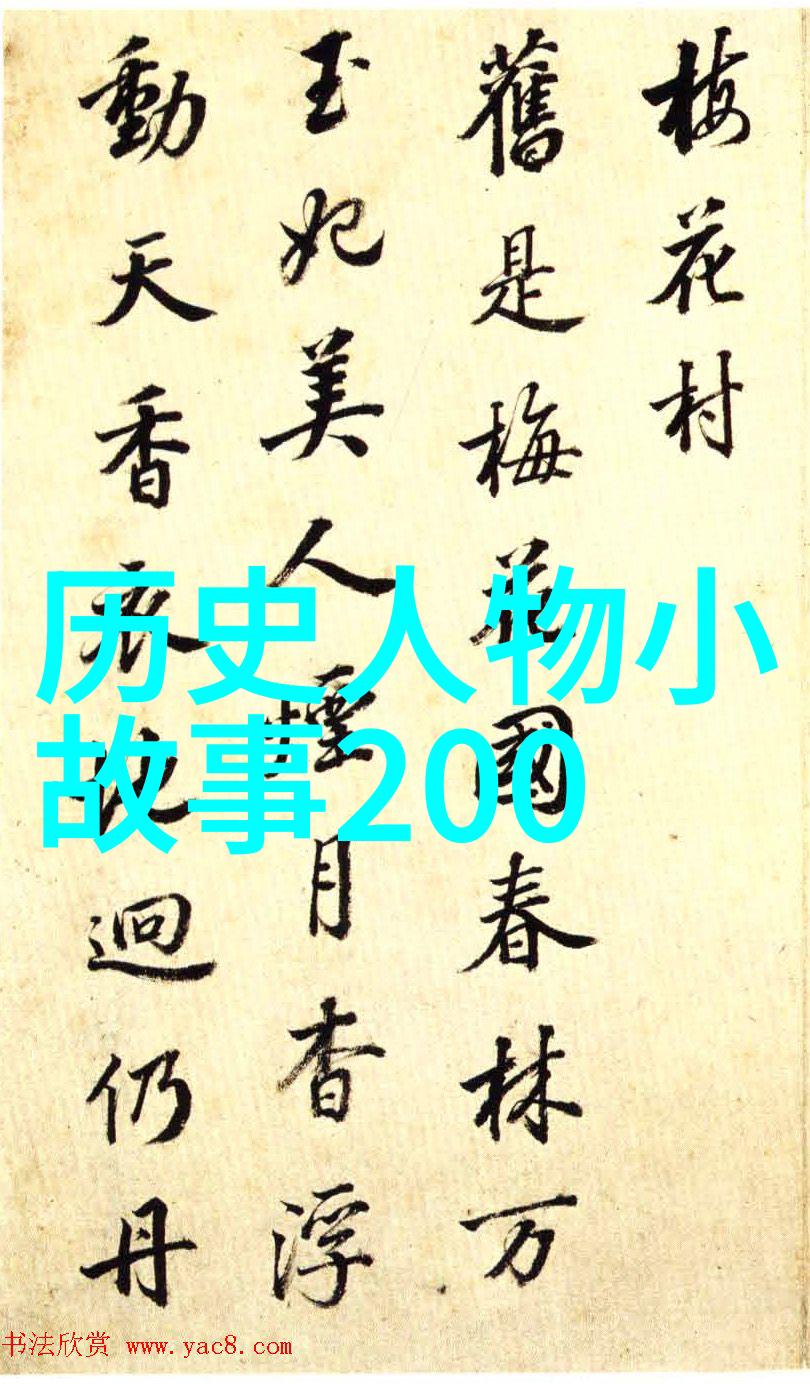 梅花村
舊是梅花國春林万
玉妃美人煙月杳浮
動天香衣袂迥仍丹
历史人物小
故事200
书法欣赏 www.yac8.com